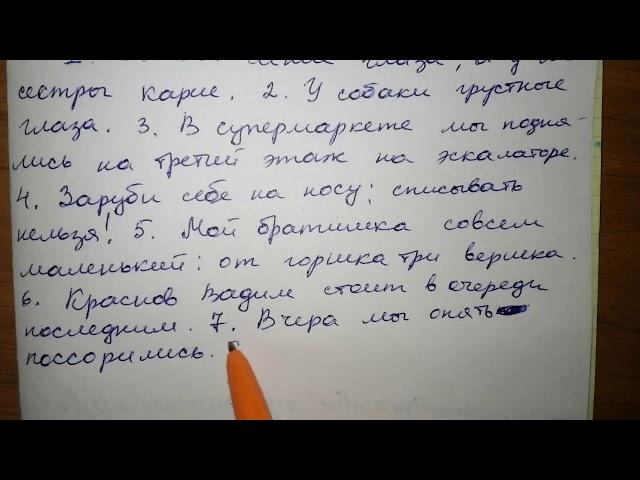 глаза, а у
сестры карие. 2. У собаки грустные
глаза. 3. В супермаркете мы подня-
лись на третий этаж на эскалаторе.
4. Заруби себе на носу: списывать
нельзя! 5. Мой братишка совсем
маленький: от горшка три вершка.
6. Краснов Вадим стоит в очереди
последним. 7. Вчера мы опять
поссорились.